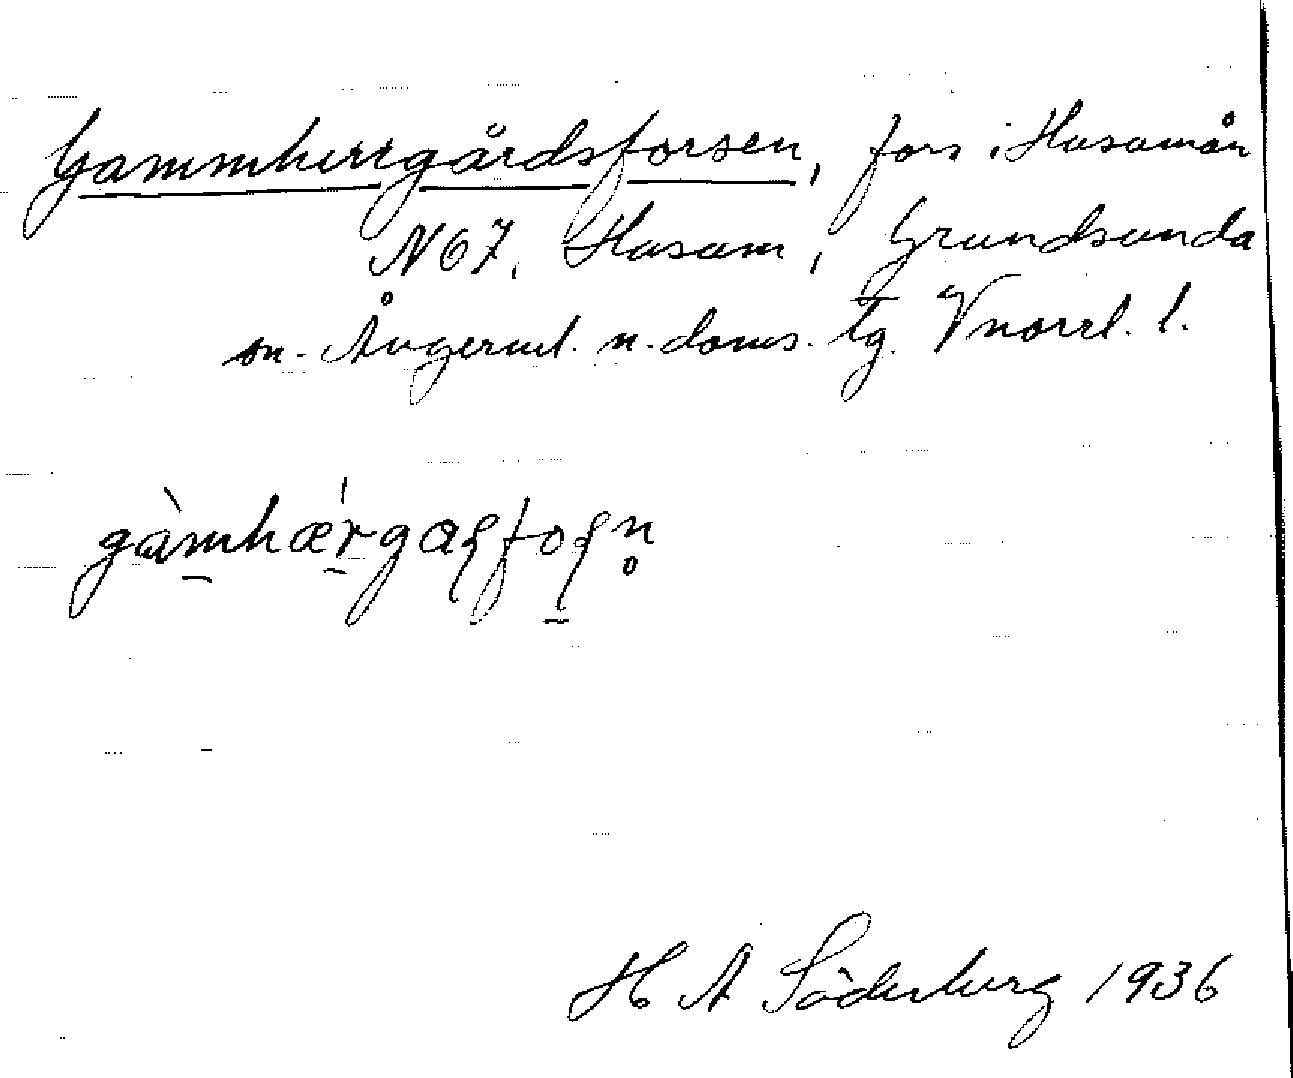 Gammherrgårdsforsen, fors i Husamån
N 67, Husum, Grundsunda
sn. Ångerml. n. doms. tg. Vnorrl. l.
gàmhǽrgaʂfoʂn̥
H A Söderberg 1936